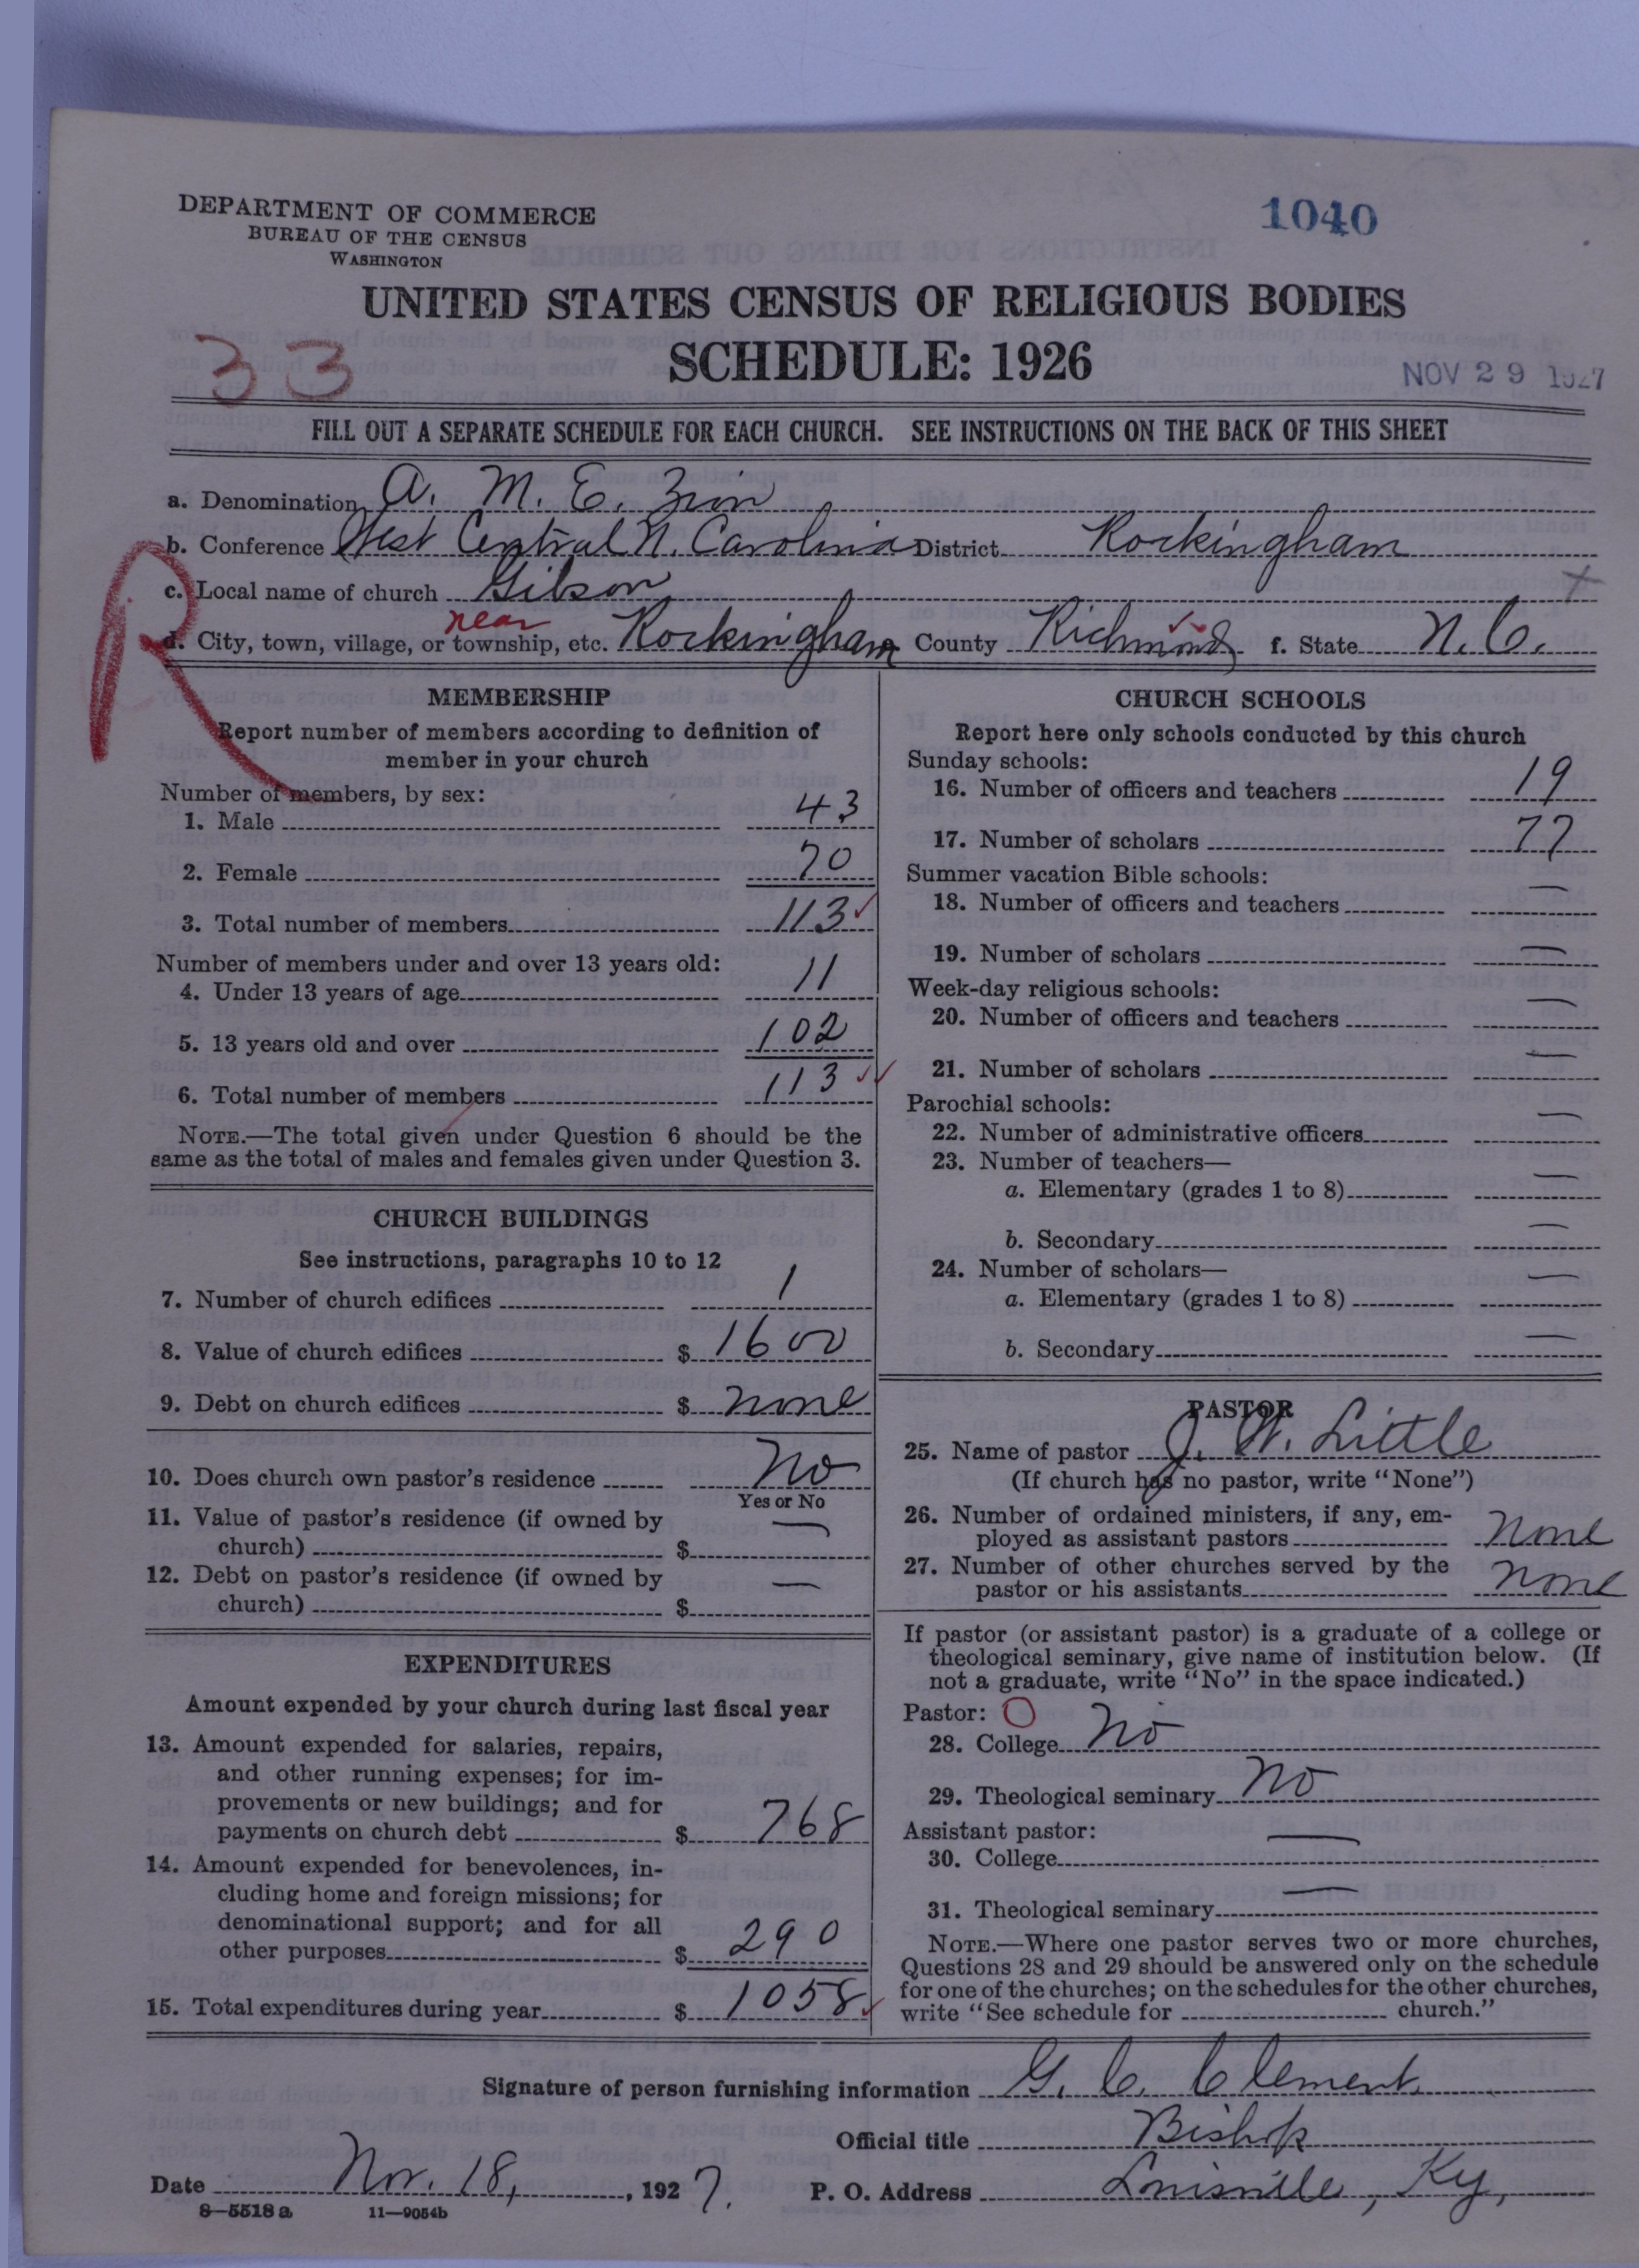 DEPARTMENT OF COMMERCE
BUREAU OF THE CENSUS
WASHINGTON
1040
UNITED STATES CENSUS OF RELIGIOUS BODIES
SCHEDULE: 1926
33
NOV 29 1927
FILL OUT A SEPARATE SCHEDULE FOR EACH CHURCH. SEE INSTRUCTIONS ON THE BACK OF THIS SHEET
a. Denomination A. M. E. Zion
b. Conference West Central N. Carolina District Rockingham
R
c. Local name of church Gibson
near
d. City, town, village, or township, etc. Rockingham County Richmond f. State N. C.
MEMBERSHIP
Report number of members according to definition of
member in your church
Number of members, by sex:
1. Male 43
2. Female 70
3. Total number of members 113
Number of members under and over 13 years old:
4. Under 13 years of age 11
5. 13 years old and over 102
6. Total number of members 113
NOTE.—The total given under Question 6 should be the
same as the total of males and females given under Question 3.
CHURCH BUILDINGS
See instructions, paragraphs 10 to 12
7. Number of church edifices 1
8. Value of church edifices $ 1600
9. Debt on church edifices $ none
10. Does church own pastor's residence No
Yes or No
11. Value of pastor's residence (if owned by
church) $ —
12. Debt on pastor's residence (if owned by
church) $ —
EXPENDITURES
Amount expended by your church during last fiscal year
13. Amount expended for salaries, repairs,
and other running expenses; for im-
provements or new buildings; and for
payments on church debt $ 768
14. Amount expended for benevolences, in-
cluding home and foreign missions; for
denominational support; and for all
other purposes $ 290
15. Total expenditures during year $ 1058
CHURCH SCHOOLS
Report here only schools conducted by this church
Sunday schools:
16. Number of officers and teachers 19
17. Number of scholars 77
Summer vacation Bible schools:
18. Number of officers and teachers —
19. Number of scholars —
Week-day religious schools:
20. Number of officers and teachers —
21. Number of scholars —
Parochial schools:
22. Number of administrative officers —
23. Number of teachers—
a. Elementary (grades 1 to 8) —
b. Secondary —
24. Number of scholars—
a. Elementary (grades 1 to 8) —
b. Secondary —
PASTOR
25. Name of pastor J. W. Little
(If church has no pastor, write "None")
26. Number of ordained ministers, if any, em-
ployed as assistant pastors none
27. Number of other churches served by the
pastor or his assistants none
If pastor (or assistant pastor) is a graduate of a college or
theological seminary, give name of institution below. (If
not a graduate, write "No" in the space indicated.)
Pastor: O
28. College No
29. Theological seminary No
Assistant pastor:
30. College —
31. Theological seminary —
NOTE.—Where one pastor serves two or more churches,
Questions 28 and 29 should be answered only on the schedule
for one of the churches; on the schedules for the other churches,
write "See schedule for church."
Signature of person furnishing information G. C. Clement
Official title Bishop
Date Nov. 18, 1927. P. O. Address Louisville, Ky,
8—5518 a 11—9054b